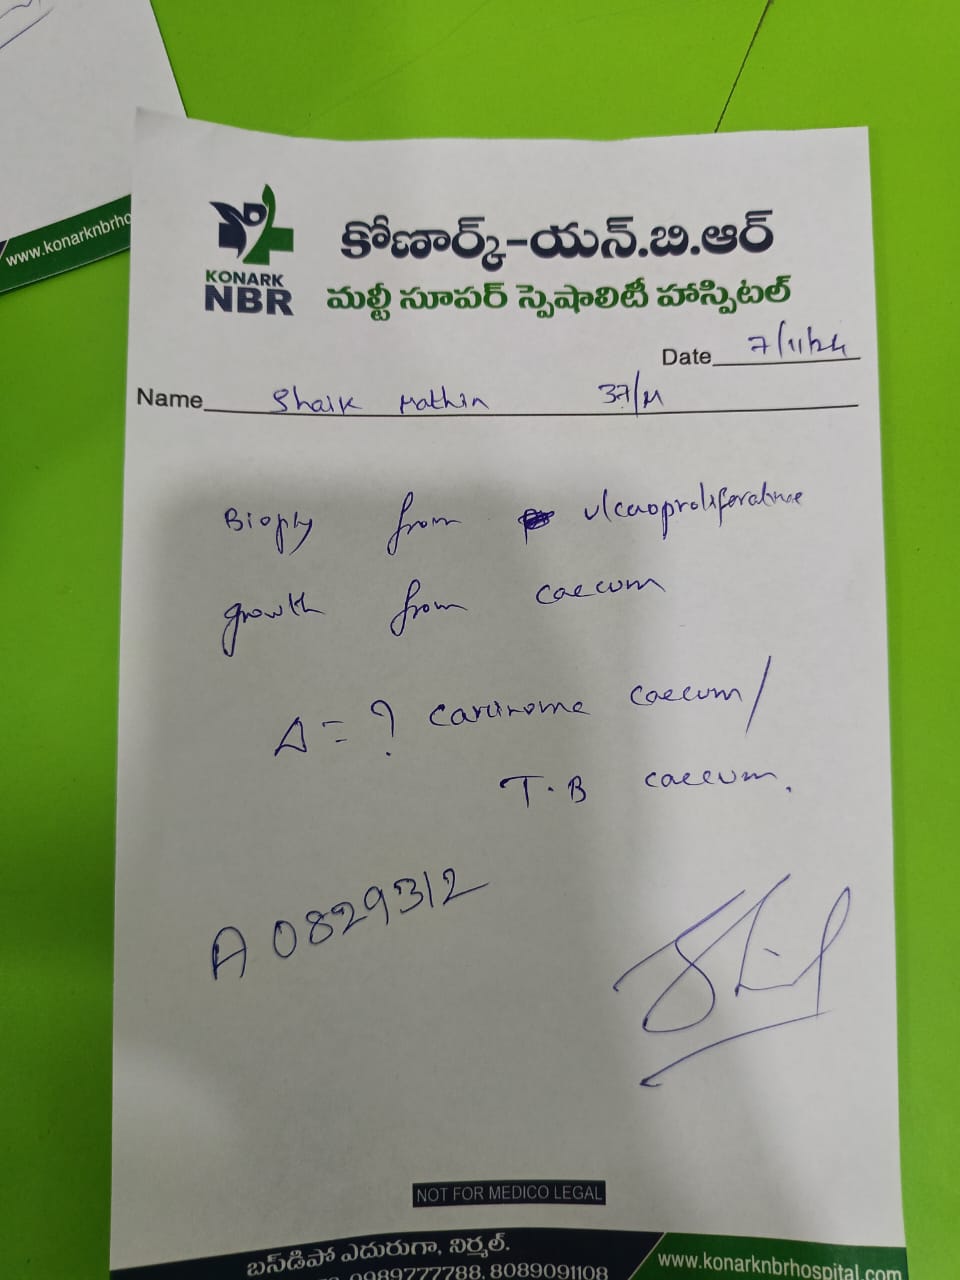 www.konarknbrho
KONARK
NBR
కోణార్క్-యన్.బి.ఆర్
మల్టీ సూపర్ స్పెషాలిటీ హాస్పిటల్
Date 7/11/24
Name Shaik Mathin 37/M
Biopsy from ulceroproliferative
growth from caecum
Δ = ? carcinoma caecum/
T.B caecum.
A0829312
NOT FOR MEDICO LEGAL
బస్‌డిపో ఎదురుగా, నిర్మల్.
9989777788, 8089091108
www.konarknbrhospital.com